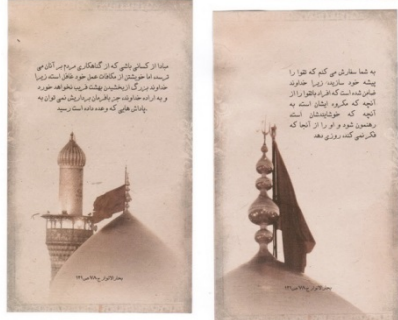 مبادا از کسانی باشی که از گناهکاری مردم بر آنان می
ترسد، اما خویشتن از مکافات عمل خود غافل است، زیرا
خداوند بزرگ از بخشیدن بهشت فریب نخواهد خورد
و به اراده خداوند، جز بافرمان برداریش نمی توان به
پاداش هایی که وعده داده است رسید
بحار الانوار ج۷۸ ص۱۲۱
به شما سفارش می کنم که تقوا را
پیشه خود سازید، زیرا خداوند
ضامن شده است که افراد باتقوا را از
آنچه که مکروه ایشان است، به
آنچه که خوشایندشان است
رهنمون شود و او را از آنجا که
فکر نمی کند، روزی دهد
بحار الانوار ج۷۸ ص۱۲۱